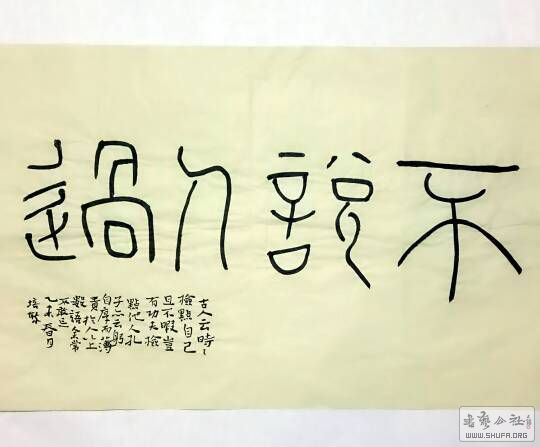 不說人過
古人云時〻
檢點自己
且不暇豈
有功夫檢
點他人孔
子亦云躬
自厚而薄
責於人以上
數語余常
不敢忘
乙未春月
書藝公社
WWW.SHUFA.ORG